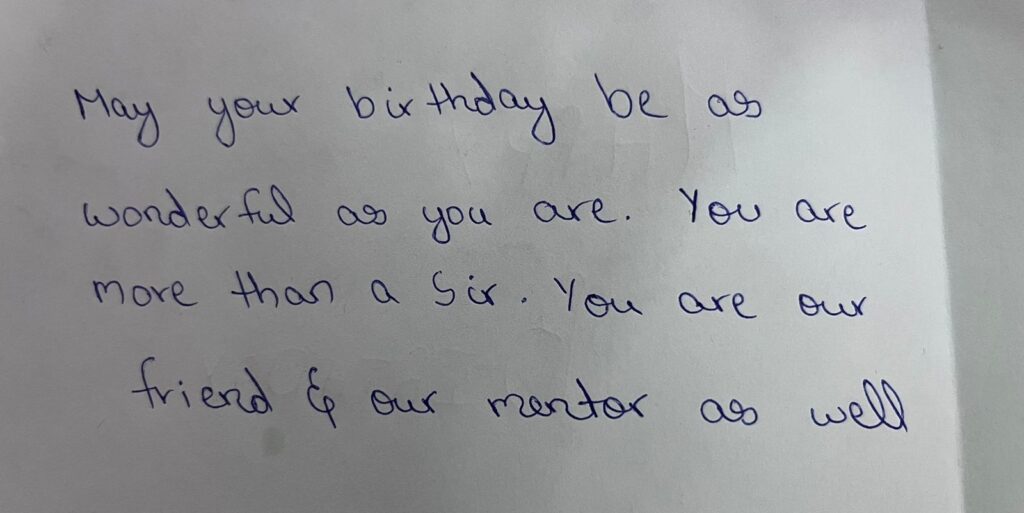 May your birthday be as
wonderful as you are. You are
more than a Sir. You are our
friend & our mentor as well